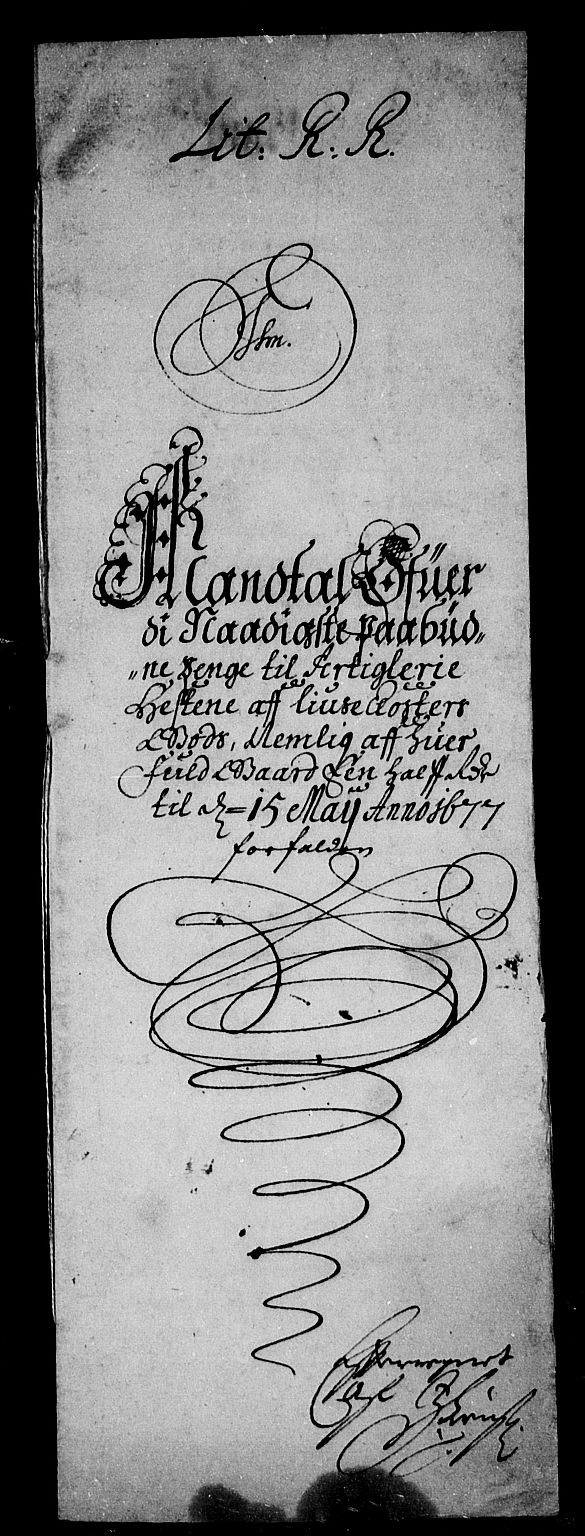 Lit: R: R.
Mandtal Ofüer
di Naadigste paabüd„
„ne penge til Artiglerie
Hestene aff liuseclosters
Gods, Nemlig aff huer
fuld Gaard Een halff
til d– 15 Maÿ Anno 1677
forfalden